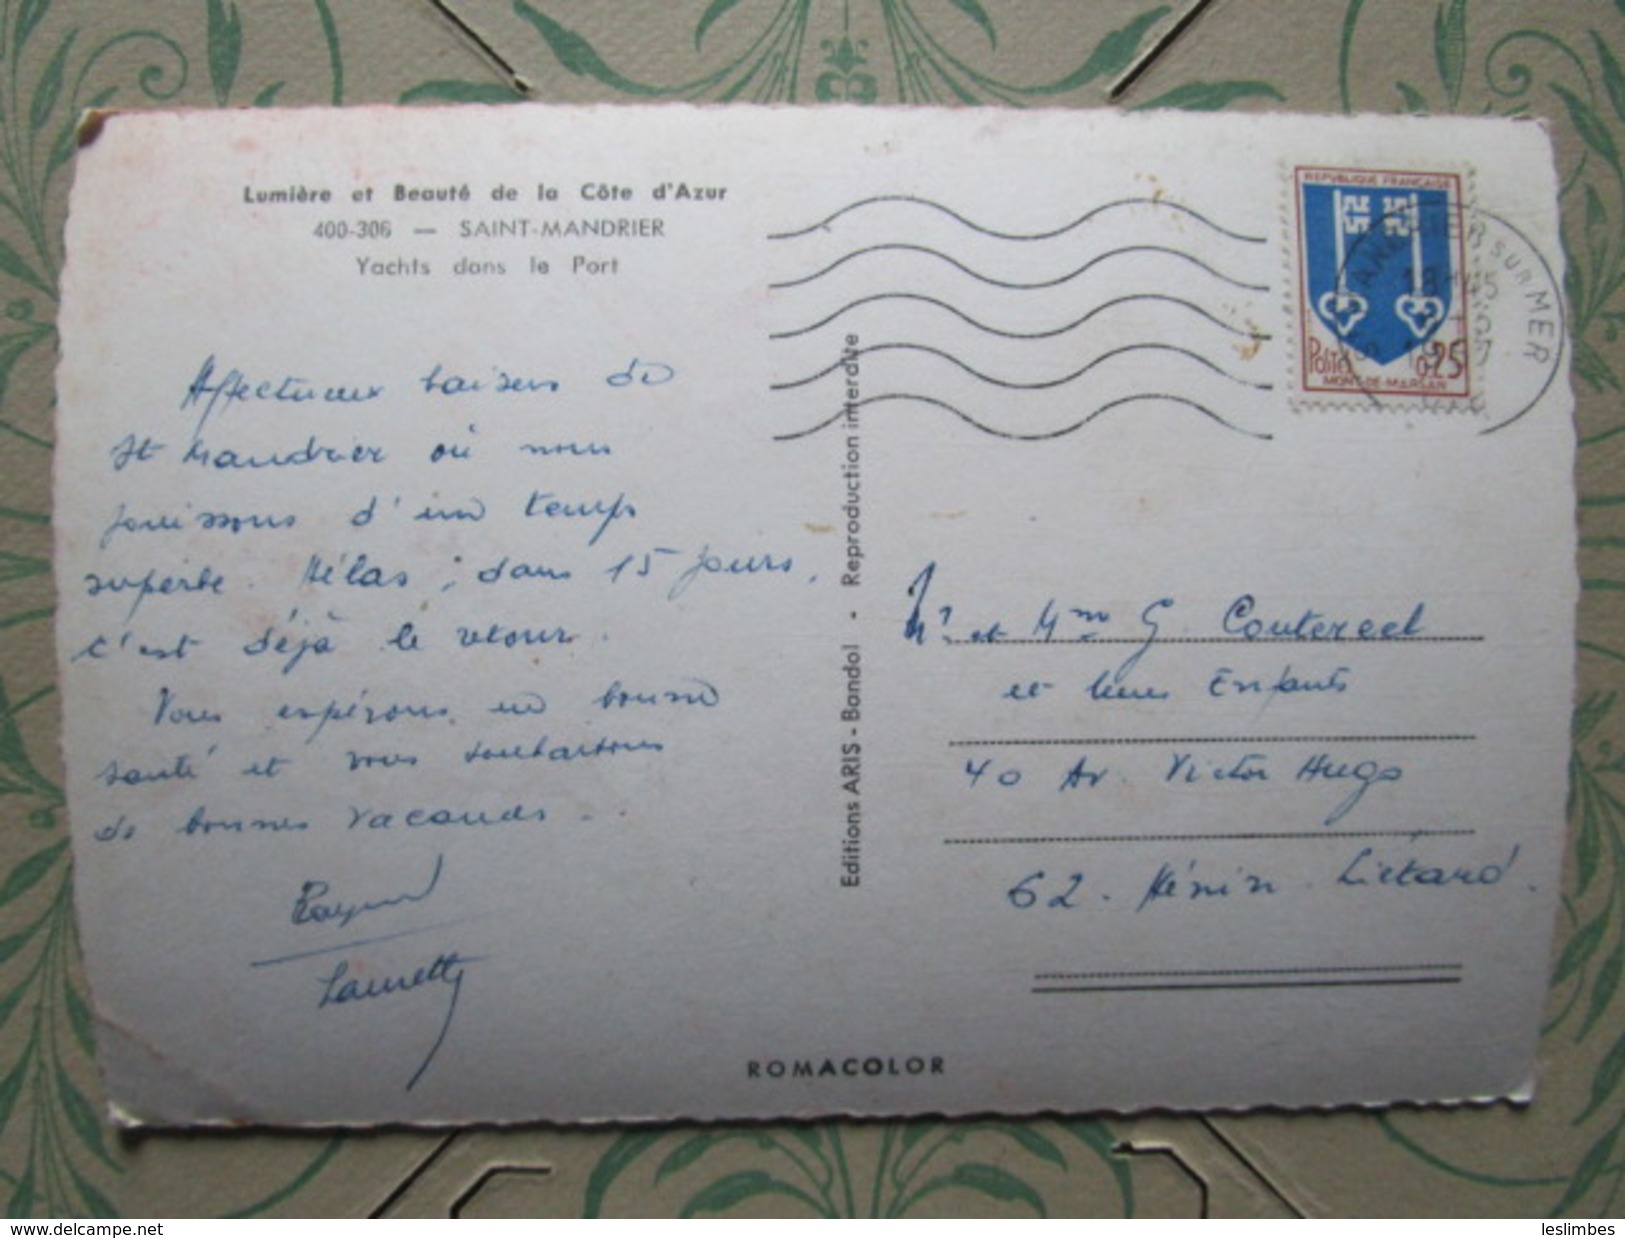 Lumière et Beauté de la Côte d'Azur
400-306 — SAINT-MANDRIER
Yachts dans le Port
Affectueux baisers de
St Mandrier où nous
jouissons d'un temps
superbe. Hélas, dans 15 jours,
c'est déjà le retour.
Vous espérons en bonne
santé et vous souhaitons
de bonnes vacances.
Raymond
Laurette
Editions ARIS - Bandol - Reproduction interdite
REPUBLIQUE FRANÇAISE
Postes 0,25
MONT-DE-MARSAN
MANDRIER SUR MER
18H45
VAR
Mr et Mme G. Contereel
et leurs Enfants
40 Av. Victor Hugo
62 - Hénin Liétard.
ROMACOLOR
www.delcampe.net
leslimbes